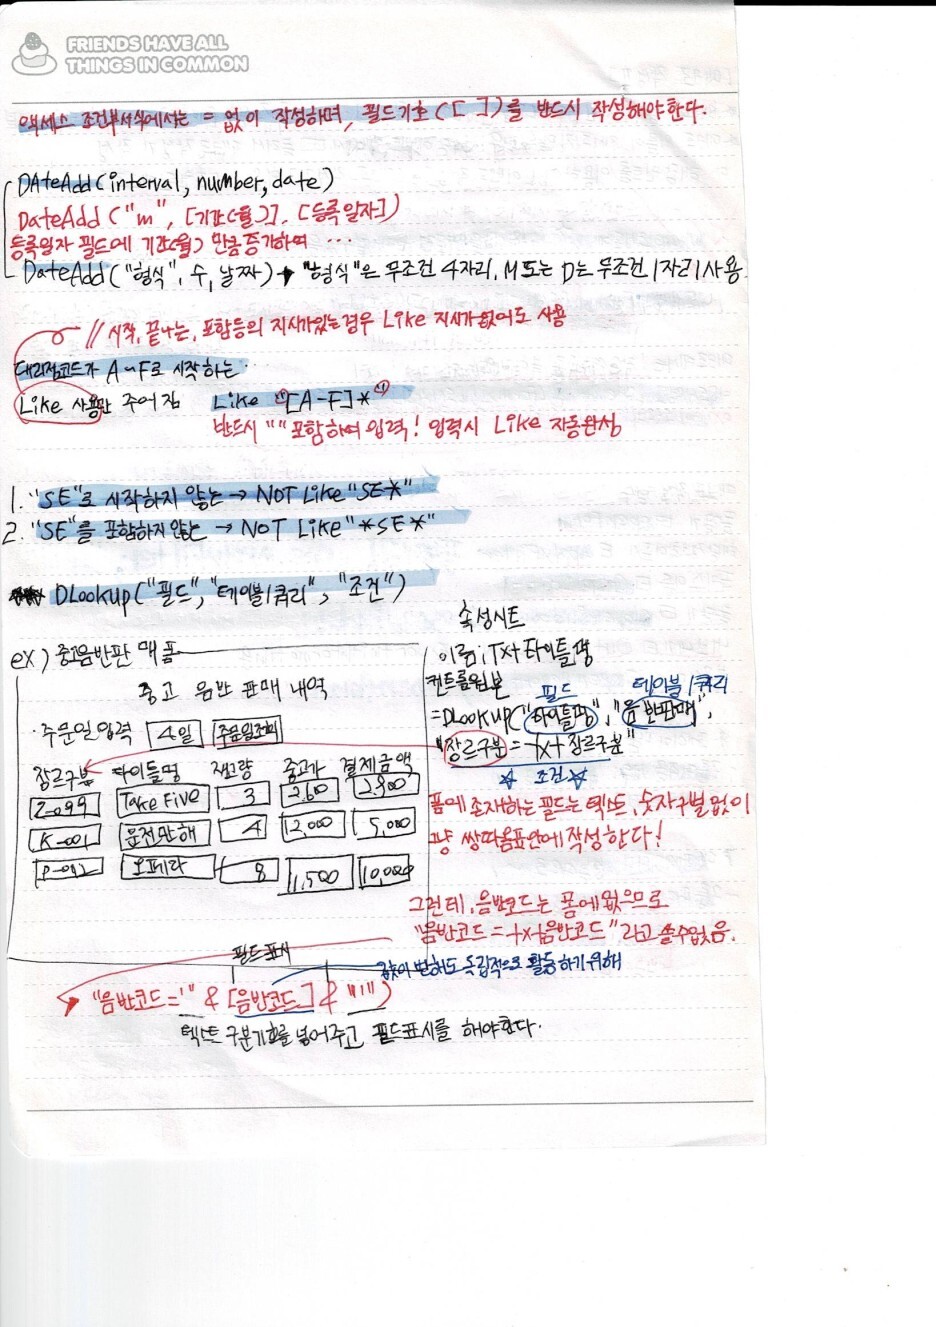 FRIENDS HAVE ALL
THINGS IN COMMON
액세스 조건부서식에서는 = 없이 작성하며, 필드기호([ ])를 반드시 작성해야한다.
DAteAdd(interval, number, date)
DateAdd("m", [기간(월)], [등록일자])
등록일자 필드에 기간(월) 만큼 증가하여 ...
DateAdd("형식", 수, 날짜) → "형식"은 무조건 4자리, M 또는 D는 무조건 1자리 사용.
// 시작, 끝나는, 포함등의 지시가있는경우 Like 지시가없어도 사용
대리점코드가 A~F로 시작하는..
Like 사용만 주어짐 Like "[A-F]*"
반드시 "" 포함하여 입력! 입력시 Like 자동완성
1. "SE"로 시작하지 않는 → NOT Like "SE*"
2. "SE"를 포함하지않는 → NOT Like "*SE*"
DLookup("필드", "테이블/쿼리", "조건")
ex) 중고음반판매폼
중고 음반 판매 내역
주문일입력 4일 주문일조회
장르구분 타이틀명 재고량 중고가 결제금액
Take Five 3
K-001 운전만해 4 12,000 5,000
오페라 8 11,500 10,000
속성시트
이름: Txt타이틀명
컨트롤원본
필드 테이블/쿼리
=DLookup("타이틀명", "음반판매",
"장르구분=txt장르구분"
☆ 조건 ☆
폼에 존재하는 필드는 텍스트, 숫자구별없이
그냥 쌍따옴표안에 작성한다!
그런데, 음반코드는 폼에없으므로
"음반코드=txt음반코드"라고 쓸수없음.
필드표시
값이 변해도 독립적으로 활동하기위해
"음반코드='" & [음반코드] & "'")
텍스트 구분기호를 넣어주고 필드표시를 해야한다.